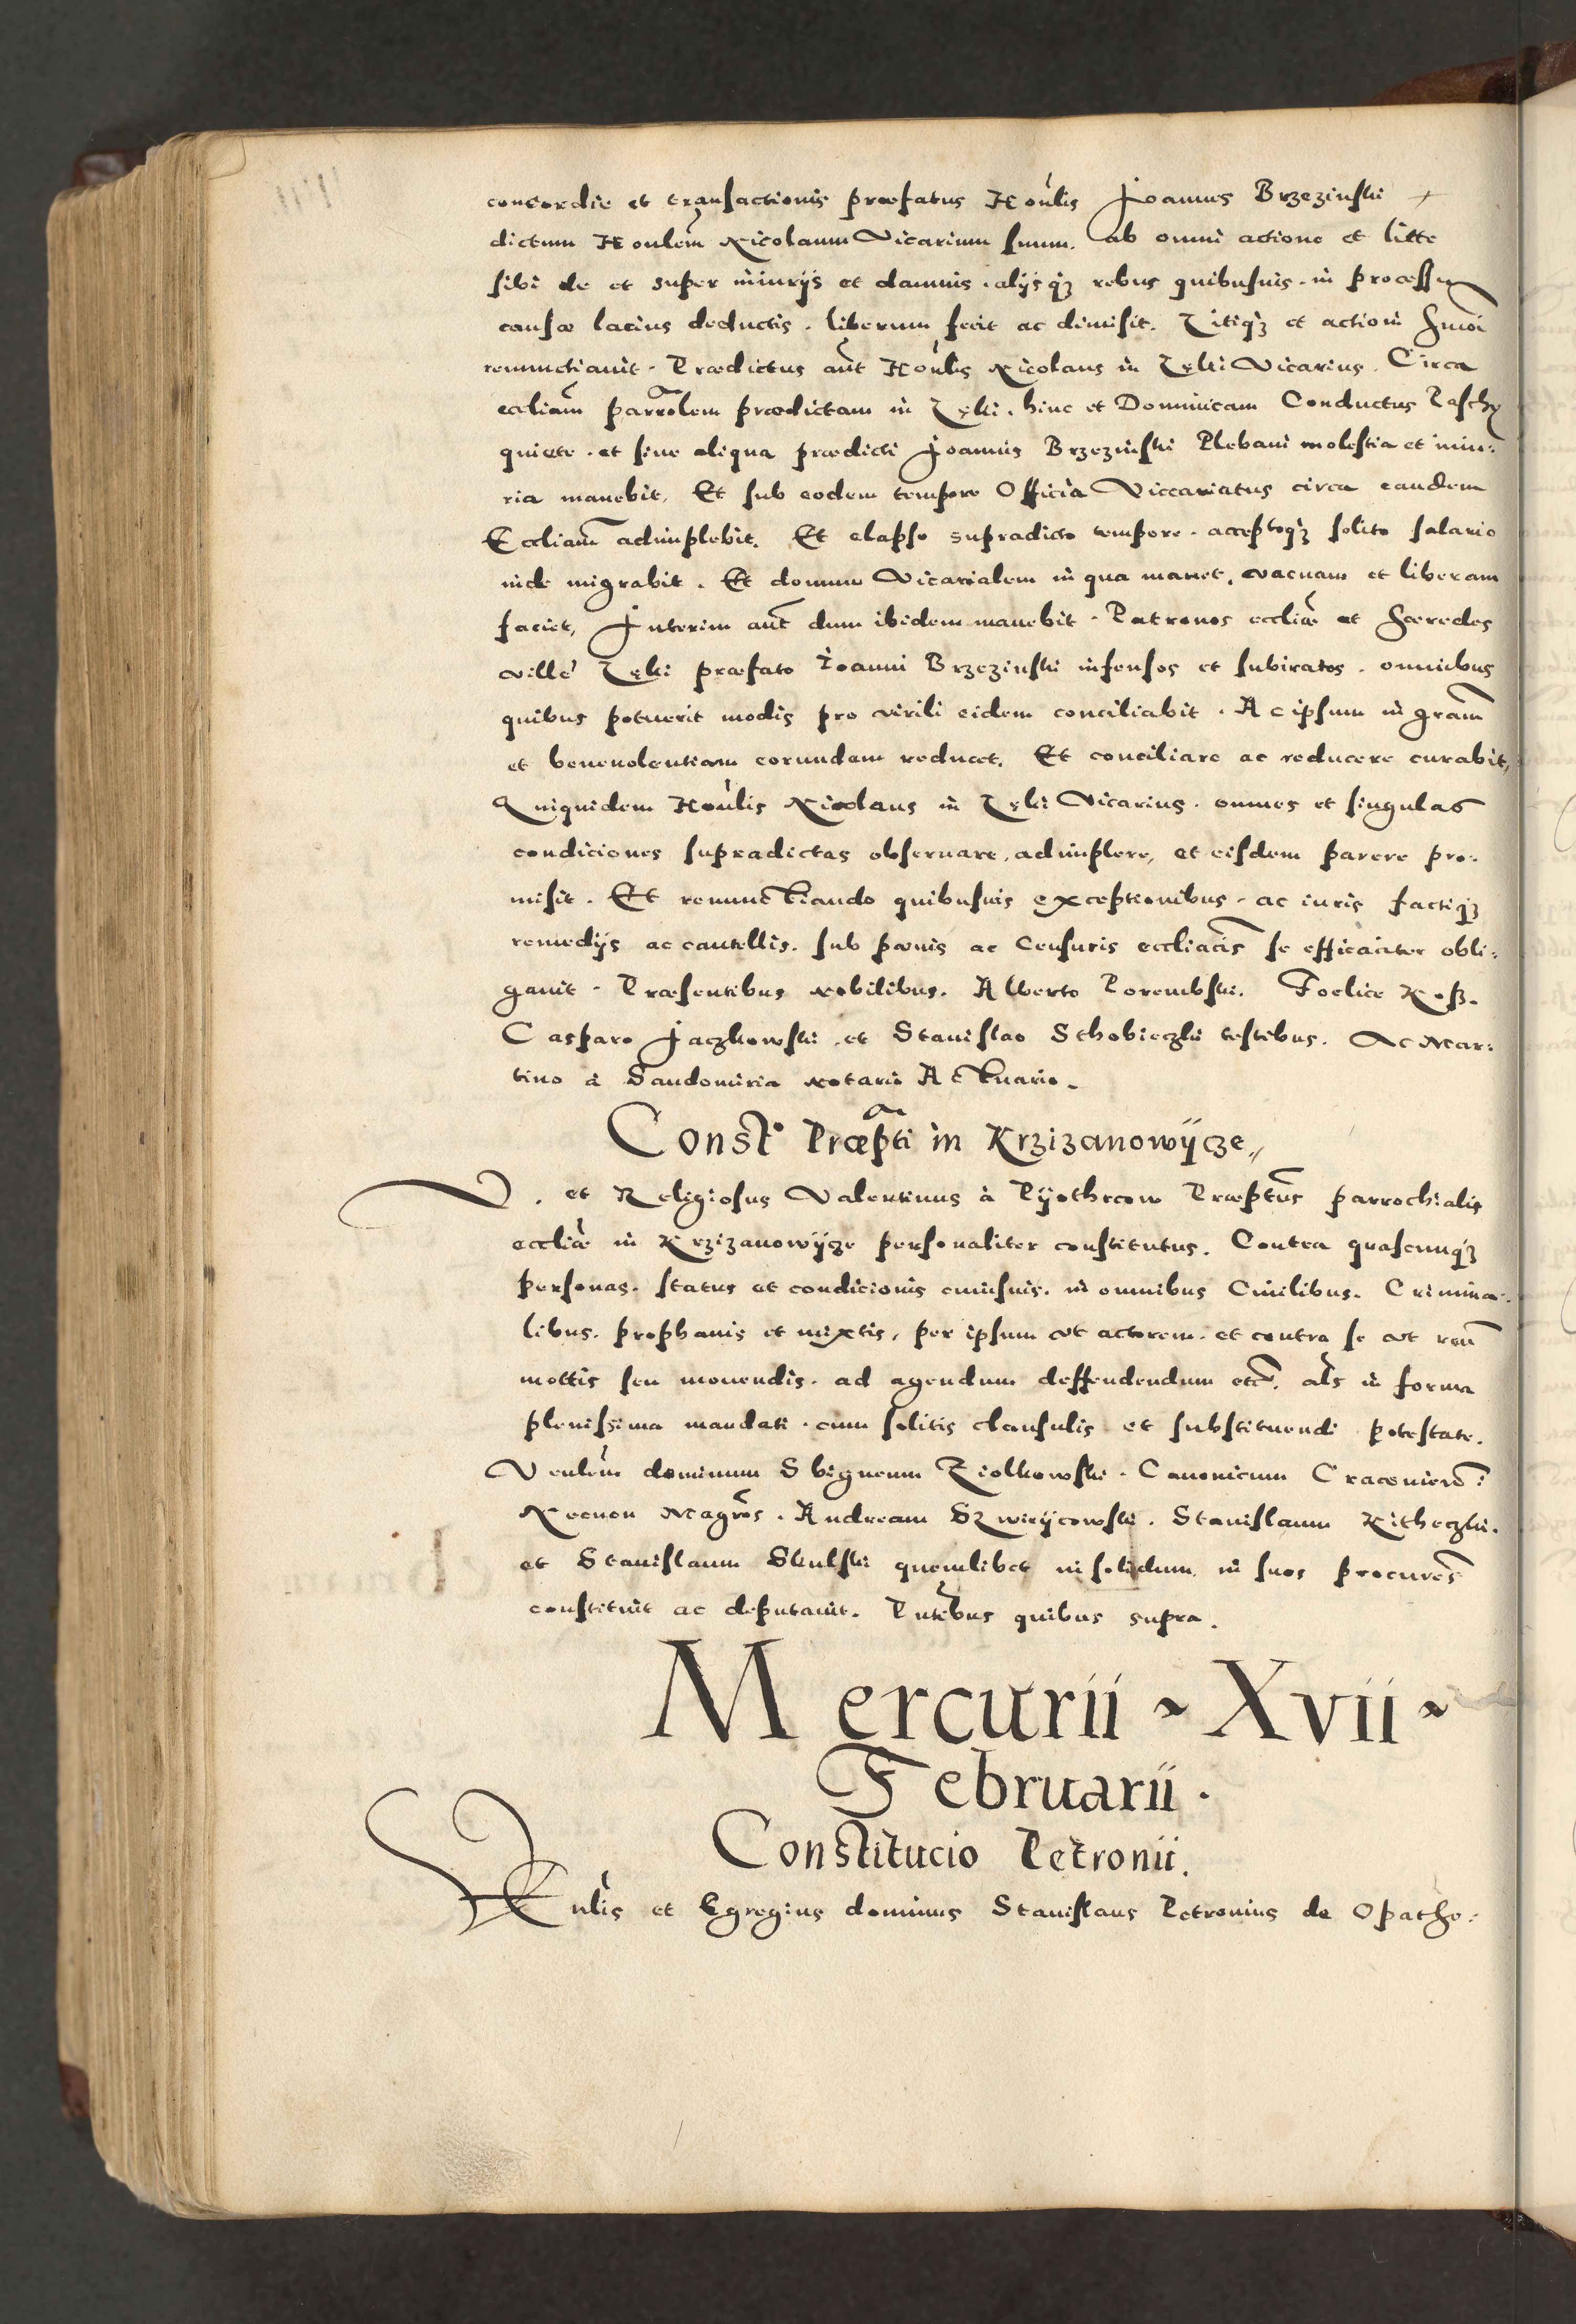 concordie et transactionis præfatus Honlis Joannes Brzezinski
dictum Honlem Nicolaum Vicarium suum. ab omni actione et litte
sibi de et super iniurijs et damnis. alijsq3 rebus quibusuis. in processu
causæ lacius deductis. liberum fecit ac dimisit. Litiq3 et actioni hmoi
renunctiauit. Prædictus aut Honlis Nicolaus in Lęki Vicarius. Circa
ecliam parrolem prædictam in Lęki. hinc et Dominicam Conductus Paschę
quiete. et sine aliqua prædicti Joannis Brzezinski Plebani molestia et iniu:
ria manebit. Et sub eodem tempore Officia Viccariatus circa eandem
Eccliam adimplebit. Et elapso supradicto tempore. acceptoq3 solito salario
inde migrabit. Et domum Vicarialem in qua manet. vacuam et liberam
faciet, Interim aut dum ibidem manebit. Patronos eccliæ et hæredes
ville Lęki præfato Ioanni Brzezinski infensos et subiratos. omnibus
quibus potuerit modis pro virili eidem conciliabit. Ac ipsum in gram
et beneuolentiam eorundem reducet. Et conciliare ac reducere curabit,
Quiquidem Honlis Nicolaus in Lęki Vicarius. omnes et singulas
condiciones supradictas obseruare, adimplere, et eisdem parere pro:
misit. Et renunctiando quibusuis exceptionibus. ac iuris factiq3
remedijs ac cautellis. sub pœnis ac Censuris eccliacis se efficaciter obli:
gauit. Præsentibus nobilibus. Alberto Porembski. Foelice Koß.
Casparo Jaczkowski. et Stanislao Sthobieczki testibus. Ac Mar:
tino à Sandomiria notario Actuario.
Const° Præpti in Krzizanowÿcze,,
V. et Religiosus Valentinus à Pÿothrcow Præptus parrochialis
eccliæ in Krzizanowÿcze personaliter constitutus. Contra quascunq3
personas. status et condicionis cuiusuis. in omnibus Ciuilibus. Crimina:
libus. prophanis et mixtis, per ipsum vt actorem. et contra se vt reu
mottis seu mouendis. ad agendum deffendendum etc. als in forma
plenissima mandati. cum solitis clausulis et substituendi potestate.
Venlem dominum Sbigneum Ziolkowski. Canonicum Cracouien:
Necnon Magros. Andream Szwirÿcowski. Stanislaum Kitheczki.
et Stanislaum Skulski quemlibet in solidum in suos procures
constituit ac deputauit. Pntibus quibus supra.
Mercurii ~ Xvii ~
Februarii.
Constitucio Petronii.
Venlis et Egregius dominus Stanislaus Petronius de Opatho: